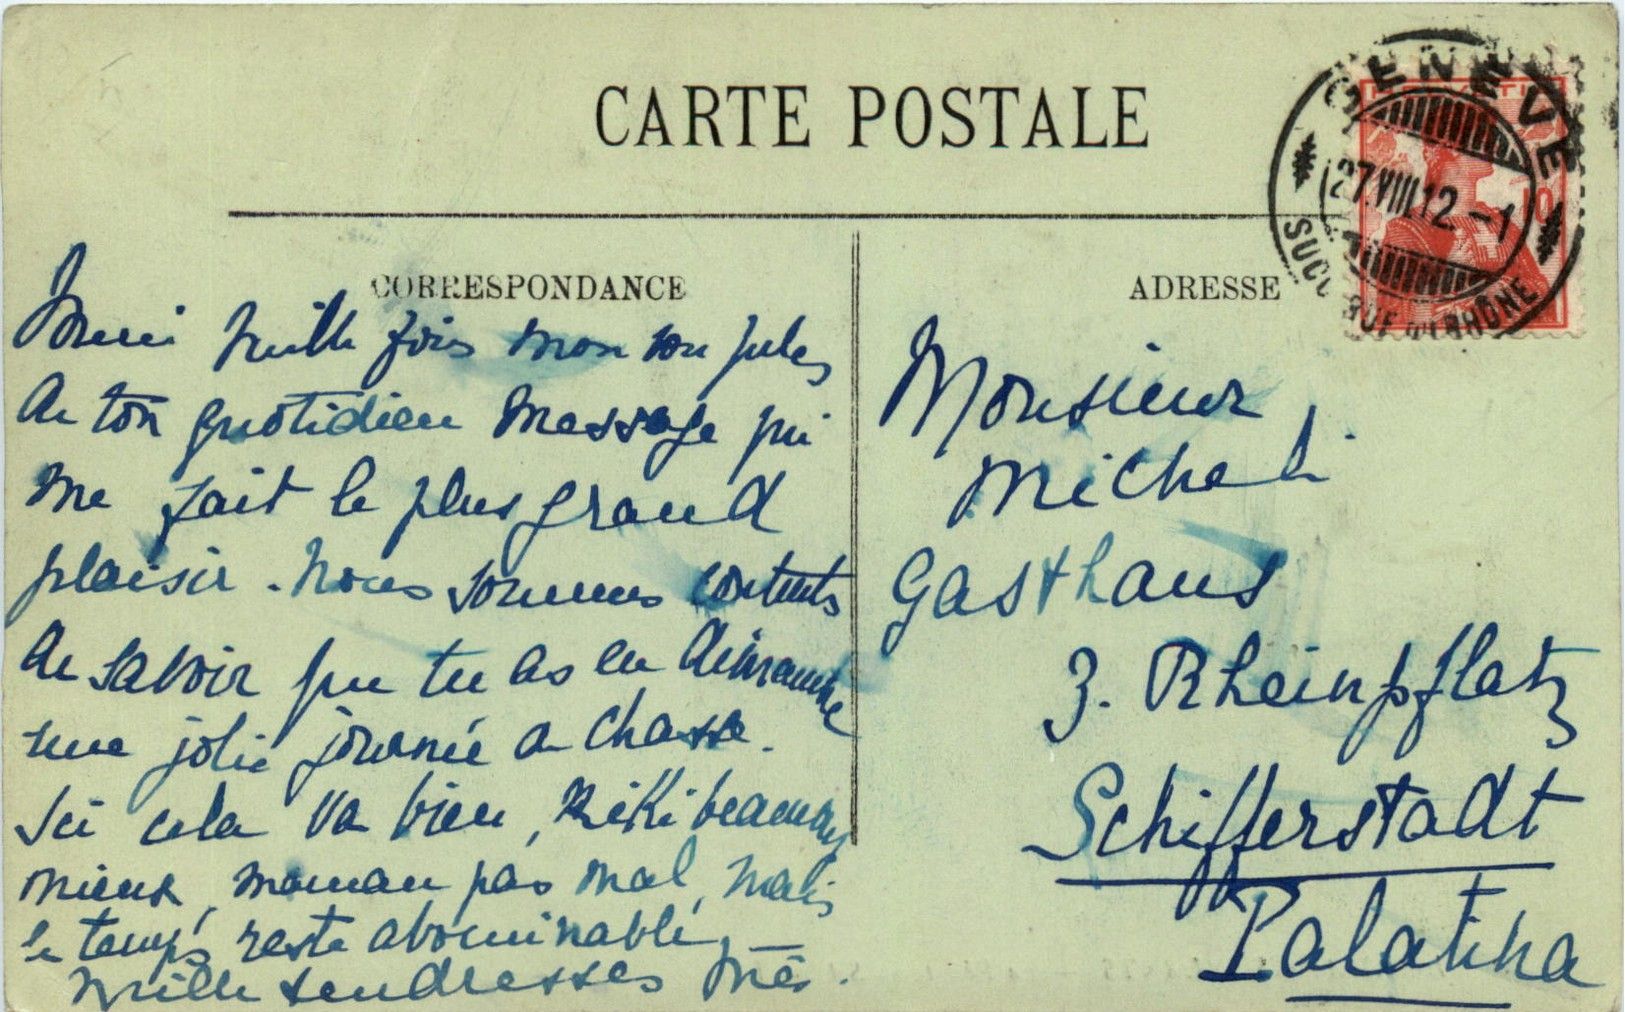 CARTE POSTALE
CORRESPONDANCE
ADRESSE
GENÈVE
27.VIII.12.-1
SUCC. RUE DU RHÔNE
HELVETIA
10
Merci mille fois mon bon Jules
de ton quotidien message qui
me fait le plus grand
plaisir. Nous sommes contents
de savoir que tu as eu dimanche
une jolie journée de chasse.
Ici cela va bien, Kiki beaucoup
mieux, maman pas mal, mais
le temps reste abominable,
mille tendresses
Monsieur
Micheli
Gasthaus
z. Rheinpflatz
Schifferstadt
Palatina